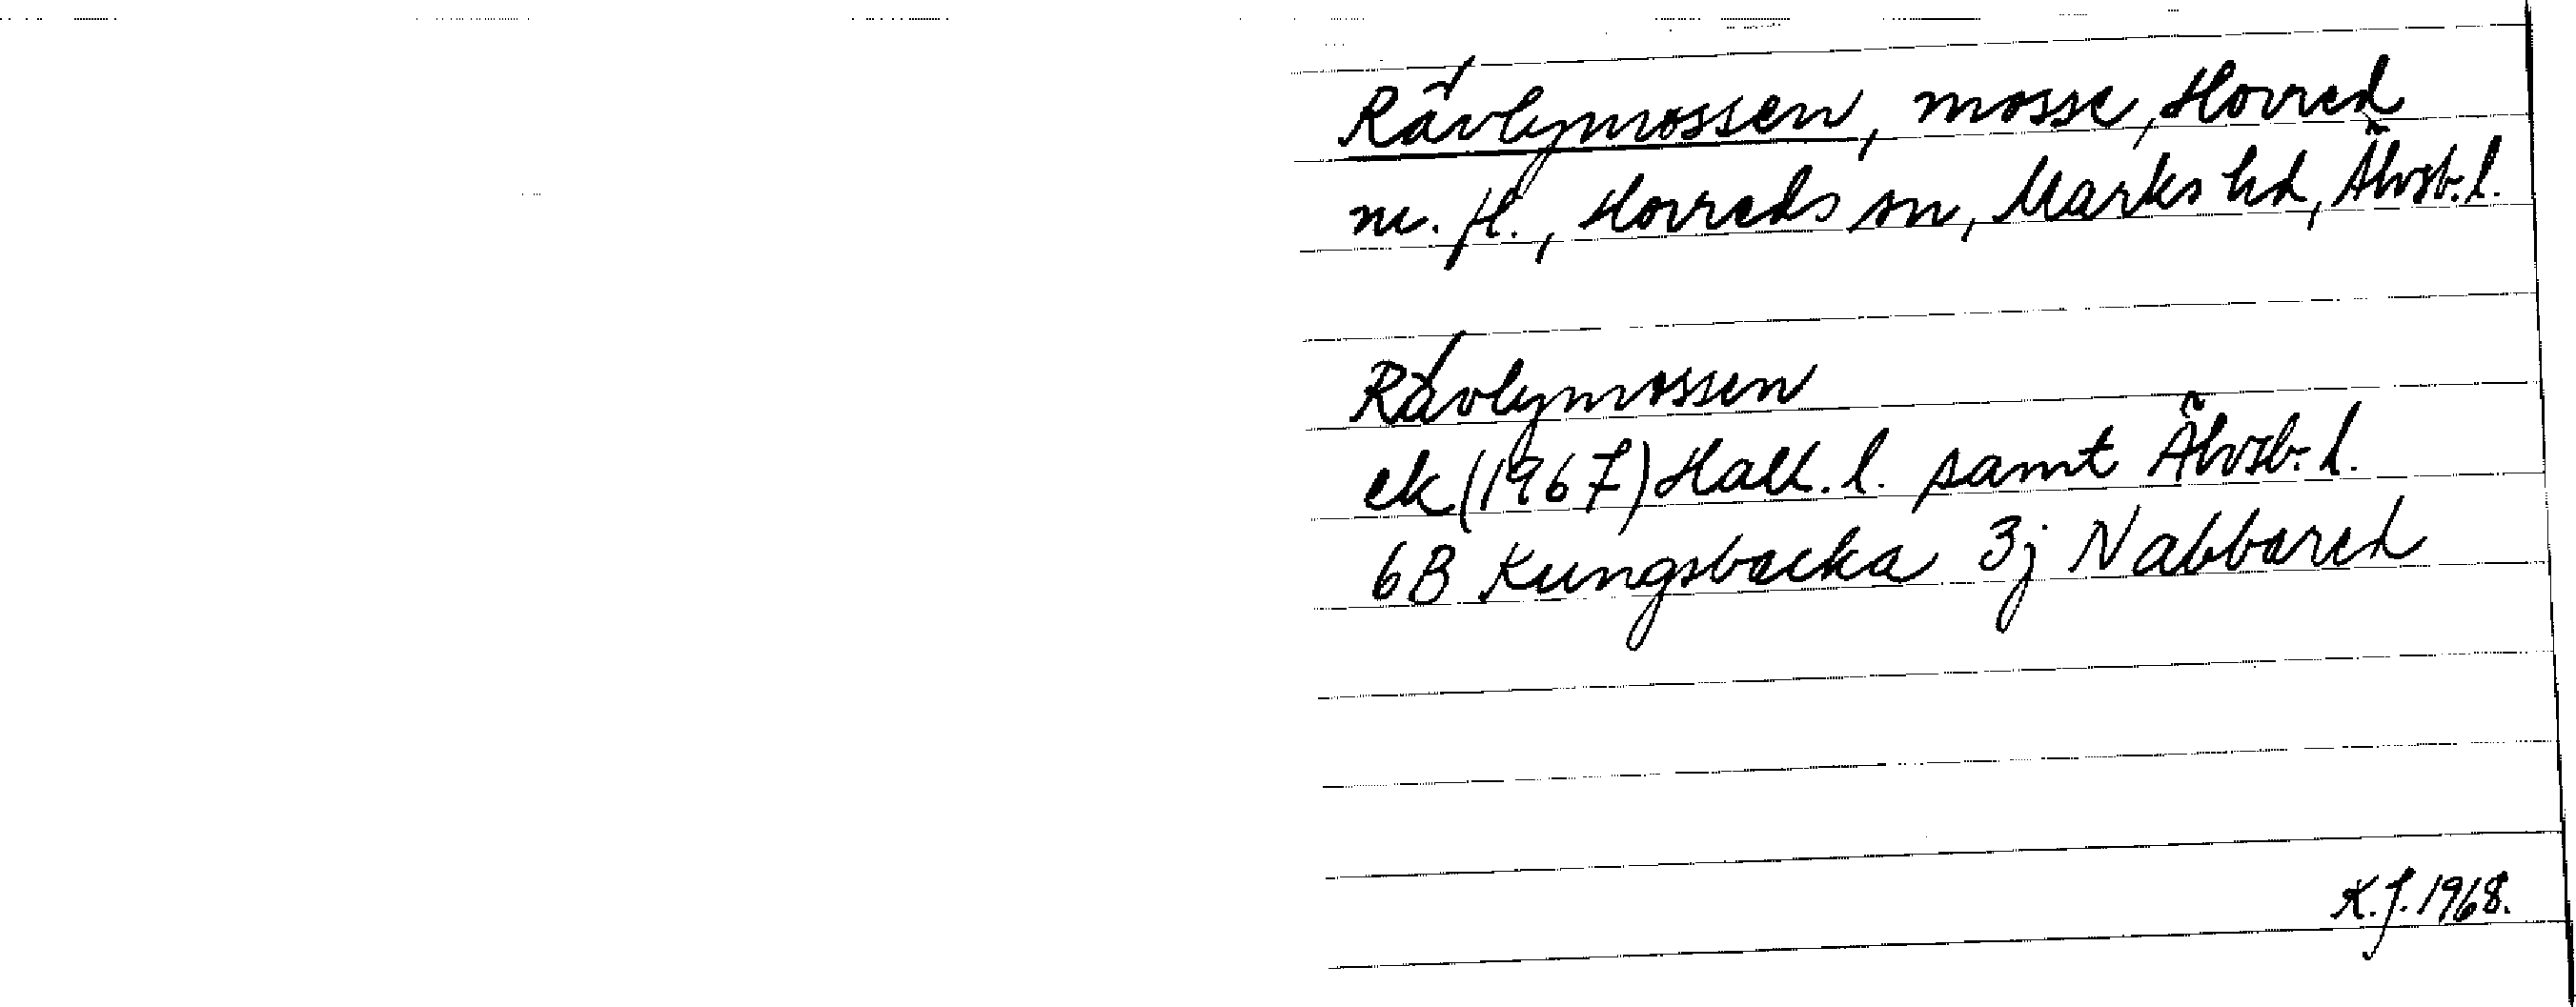 Rävlymossen, mosse, Horred
m. fl., Horreds sn, Marks hd, Älvsb. l.
Rävlymossen
ek (1967) Hall. l. samt Älvsb. l.
6B Kungsbacka 3j Nabbared
K.J. 1968.